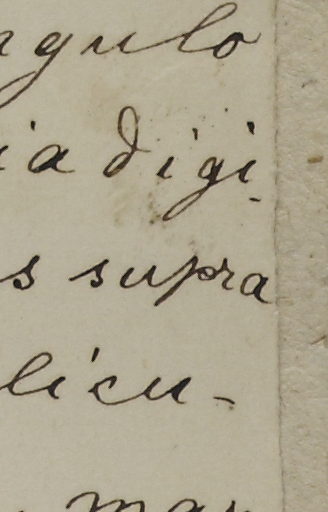 ngulo
ia digi-
s supra
licu-
mar